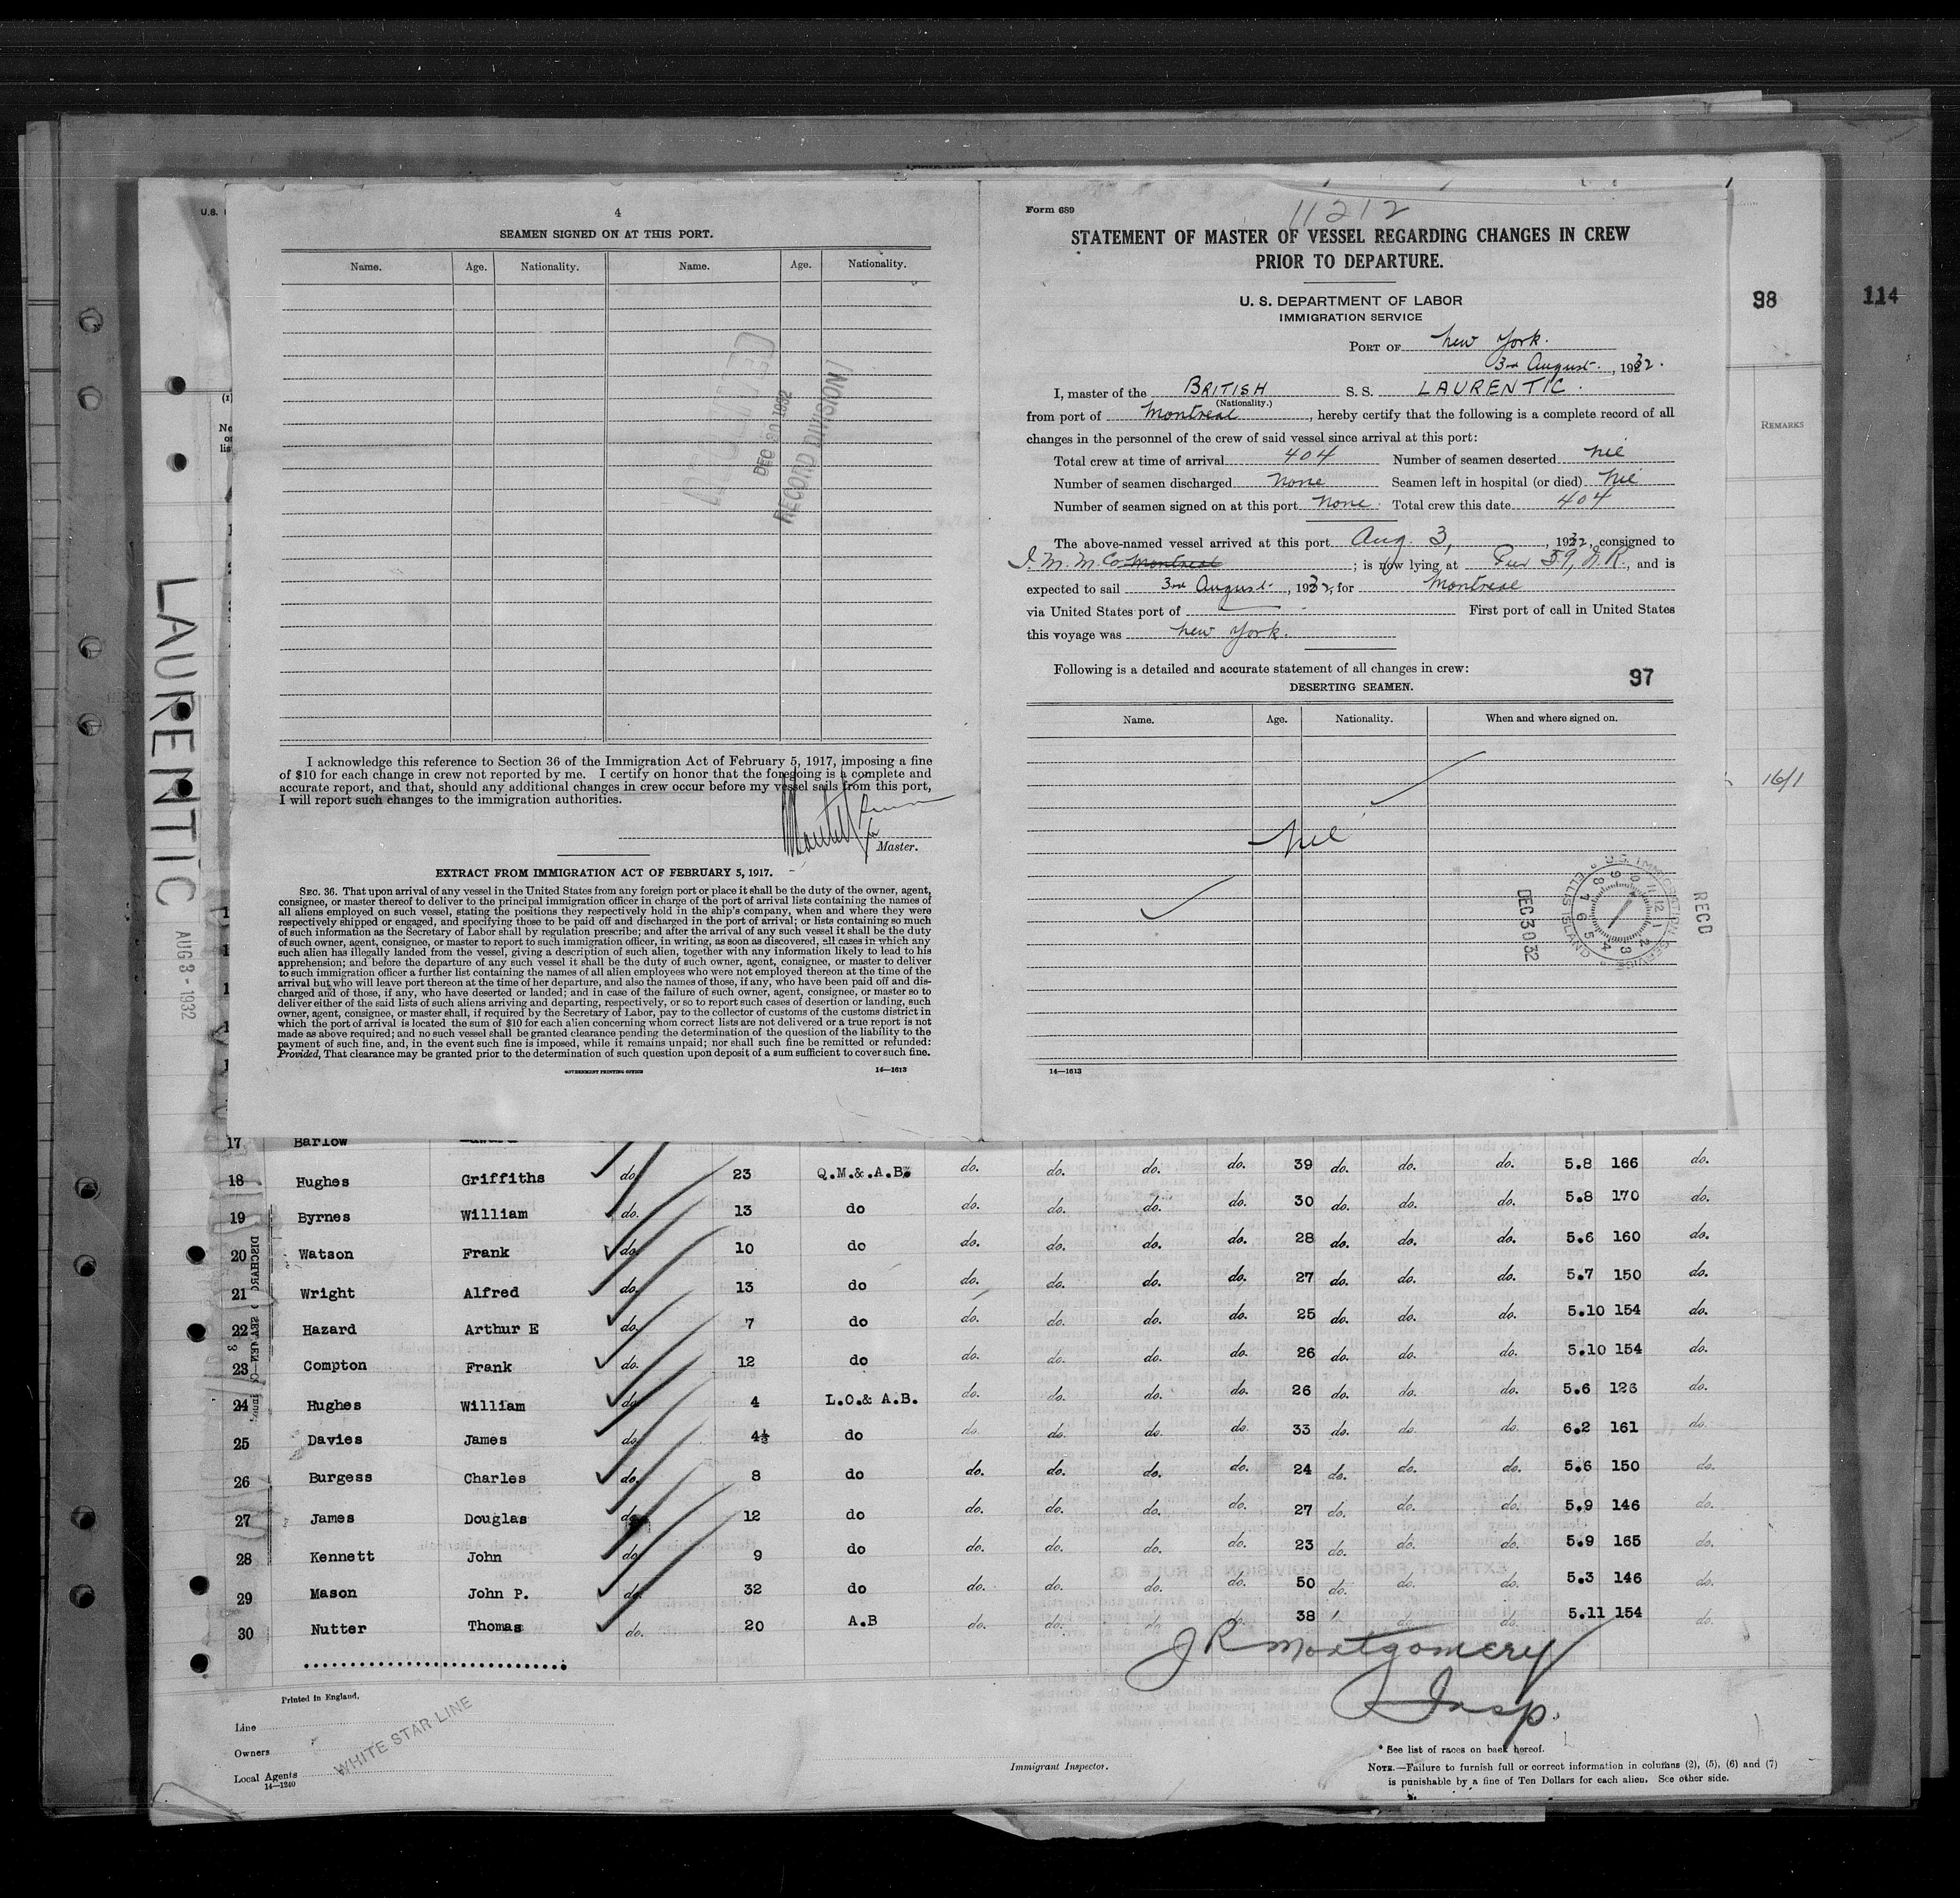 4
SEAMEN SIGNED ON AT THIS PORT.
Name. Age. Nationality. Name. Age. Nationality.
RECEIVED
DEC 30 1932
RECORD DIVISION
I acknowledge this reference to Section 36 of the Immigration Act of February 5, 1917, imposing a fine
of $10 for each change in crew not reported by me. I certify on honor that the foregoing is a complete and
accurate report, and that, should any additional changes in crew occur before my vessel sails from this port,
I will report such changes to the immigration authorities.
Master.
EXTRACT FROM IMMIGRATION ACT OF FEBRUARY 5, 1917.
SEC. 36. That upon arrival of any vessel in the United States from any foreign port or place it shall be the duty of the owner, agent,
consignee, or master thereof to deliver to the principal immigration officer in charge of the port of arrival lists containing the names of
all aliens employed on such vessel, stating the positions they respectively hold in the ship's company, when and where they were
respectively shipped or engaged, and specifying those to be paid off and discharged in the port of arrival; or lists containing so much
of such information as the Secretary of Labor shall by regulation prescribe; and after the arrival of any such vessel it shall be the duty
of such owner, agent, consignee, or master to report to such immigration officer, in writing, as soon as discovered, all cases in which any
such alien has illegally landed from the vessel, giving a description of such alien, together with any information likely to lead to his
apprehension; and before the departure of any such vessel it shall be the duty of such owner, agent, consignee, or master to deliver
to such immigration officer a further list containing the names of all alien employees who were not employed thereon at the time of the
arrival but who will leave port thereon at the time of her departure, and also the names of those, if any, who have been paid off and dis-
charged and of those, if any, who have deserted or landed; and in case of the failure of such owner, agent, consignee, or master so to
deliver either of the said lists of such aliens arriving and departing, respectively, or so to report such cases of desertion or landing, such
owner, agent, consignee, or master shall, if required by the Secretary of Labor, pay to the collector of customs of the customs district in
which the port of arrival is located the sum of $10 for each alien concerning whom correct lists are not delivered or a true report is not
made as above required; and no such vessel shall be granted clearance pending the determination of the question of the liability to the
payment of such fine, and, in the event such fine is imposed, while it remains unpaid; nor shall such fine be remitted or refunded:
Provided, That clearance may be granted prior to the determination of such question upon deposit of a sum sufficient to cover such fine.
GOVERNMENT PRINTING OFFICE 14—1613
Form 689
11212
STATEMENT OF MASTER OF VESSEL REGARDING CHANGES IN CREW
PRIOR TO DEPARTURE.
U. S. DEPARTMENT OF LABOR
IMMIGRATION SERVICE
PORT OF New York.
3rd August, 1932.
I, master of the BRITISH S. S. LAURENTIC.
(Nationality.)
from port of Montreal, hereby certify that the following is a complete record of all
changes in the personnel of the crew of said vessel since arrival at this port:
Total crew at time of arrival 404 Number of seamen deserted nil
Number of seamen discharged None Seamen left in hospital (or died) Nil
Number of seamen signed on at this port None. Total crew this date 404
The above-named vessel arrived at this port Aug. 3, 1932, consigned to
I. M. M. Co Montreal; is now lying at Pier 59, N.R., and is
expected to sail 3rd August, 1932, for Montreal
via United States port of First port of call in United States
this voyage was New York.
Following is a detailed and accurate statement of all changes in crew:
97
DESERTING SEAMEN.
Name. Age. Nationality. When and where signed on.
Nil
U.S. IMMIGRATION SERVICE ELLIS ISLAND
12 1 2 3 4 5 6 7 8 9 10 11
DEC 30 32
RECD
14—1613
98
114
REMARKS
16/1
U.S.
LAURENTIC
AUG 3 - 1932
17 Barlow
18 Hughes Griffiths do. 23 Q.M.&.A.B. do. do. do. do. 39 do. do. do. 5.8 166 do.
19 Byrnes William do. 13 do do. do. do. do. 30 do. do. do. 5.8 170 do.
20 Watson Frank do. 10 do do. do. do. do. 28 do. do. do. 5.6 160 do.
21 Wright Alfred do. 13 do do. do. do. do. 27 do. do. do. 5.7 150 do.
22 Hazard Arthur E do. 7 do do. do. do. do. 25 do. do. do. 5.10 154 do.
23 Compton Frank do. 12 do do. do. do. do. 26 do. do. do. 5.10 154 do.
24 Hughes William do. 4 L.O.& A.B. do. do. do. do. 26 do. do. do. 5.6 126 do.
25 Davies James do. 4½ do do. do. do. do. 33 do. do. do. 6.2 161 do.
26 Burgess Charles do. 8 do do. do. do. do. 24 do. do. do. 5.6 150 do.
27 James Douglas do. 12 do do. do. do. do. 27 do. do. do. 5.9 146 do.
28 Kennett John do. 9 do do. do. do. do. 23 do. do. do. 5.9 165 do.
29 Mason John P. do. 32 do do. do. do. do. 50 do. do. do. 5.3 146 do.
30 Nutter Thomas do. 20 A.B do. do. do. do. 38 do. do. 5.11 154 do.
J R Montgomery
Insp.
Printed in England.
Line
Owners
Local Agents
14—1240
WHITE STAR LINE
Immigrant Inspector.
* See list of races on back hereof.
NOTE.—Failure to furnish full or correct information in columns (2), (5), (6) and (7)
is punishable by a fine of Ten Dollars for each alien. See other side.